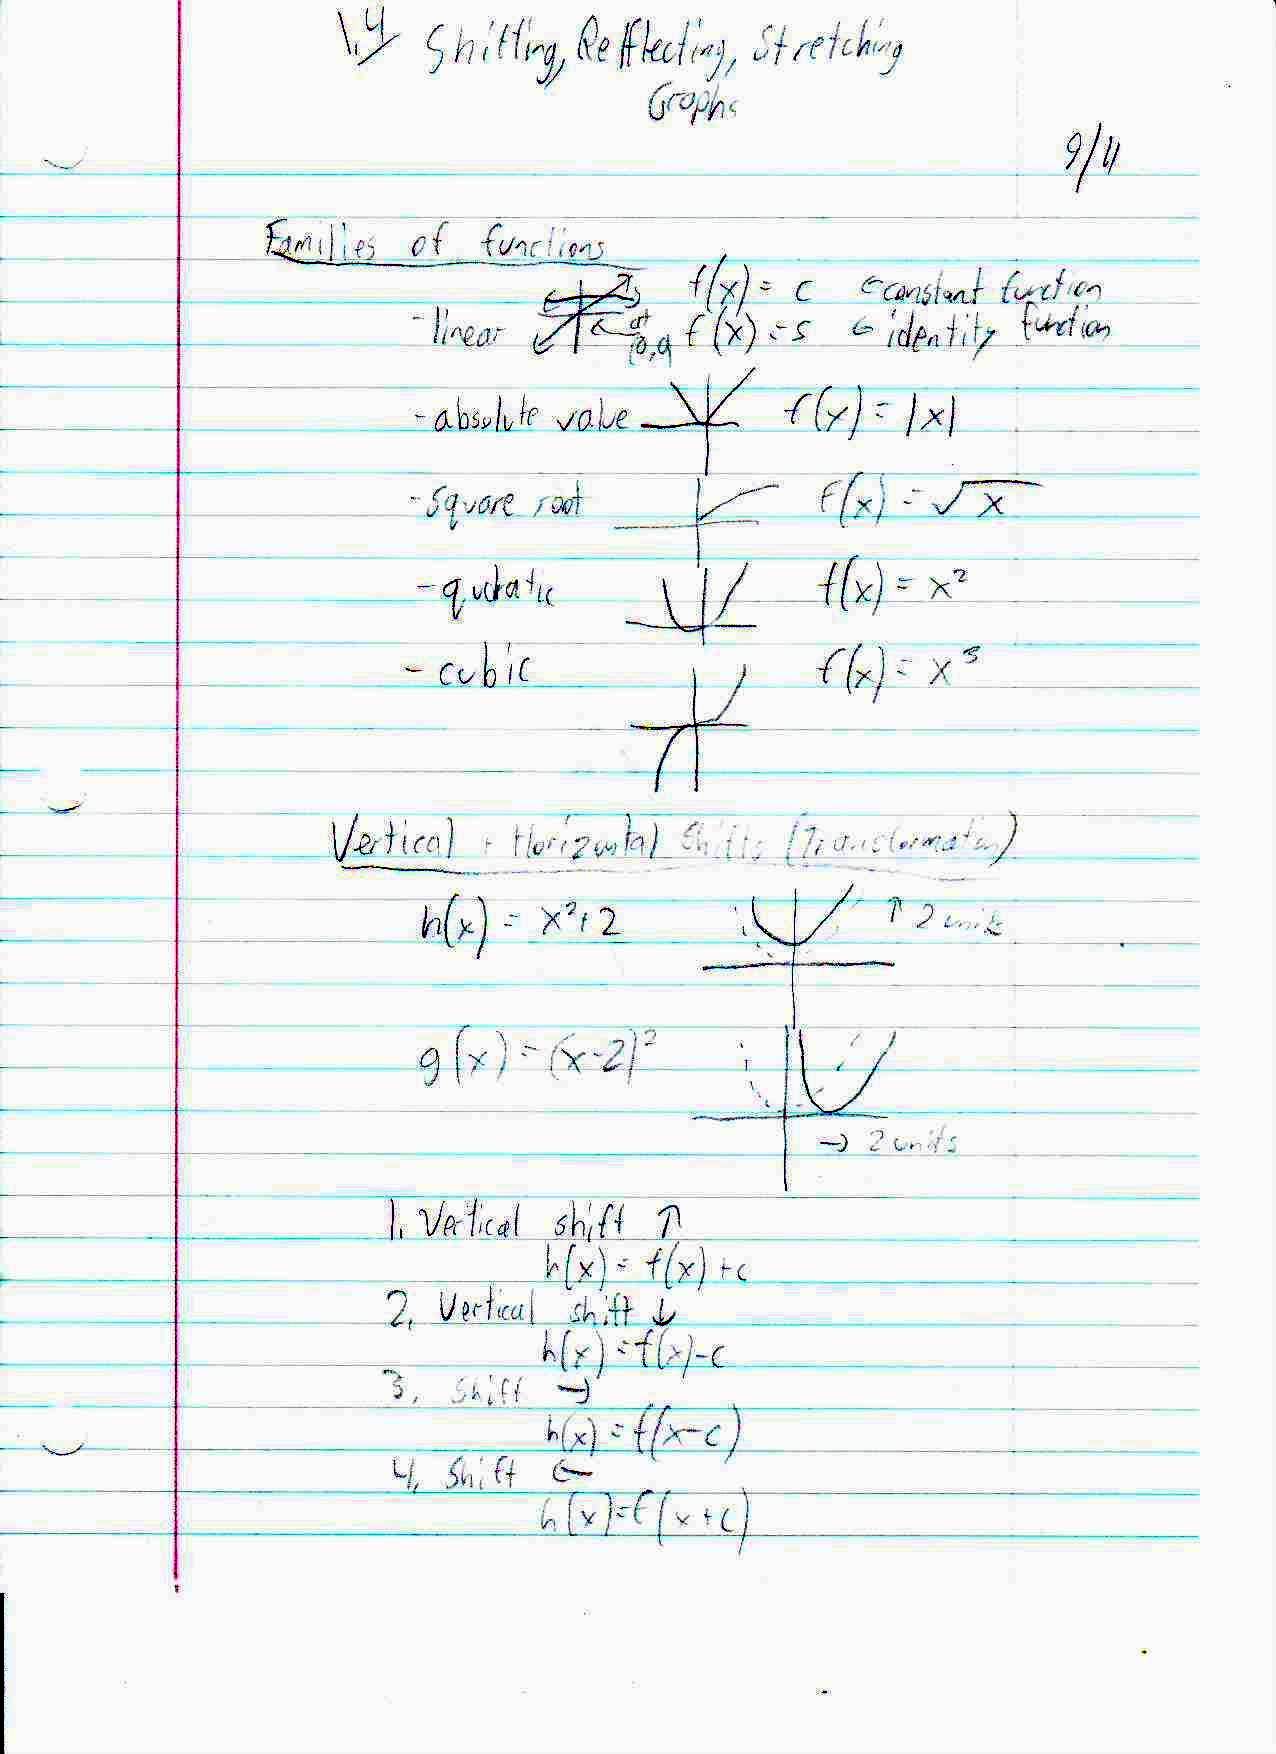 1.4 Shifting, Reflecting, Stretching
Graphs
9/11
Families of functions
f(x) = c ← constant function
- linear at (0,0) f(x) = s ← identity function
- absolute value f(x) = |x|
- square root f(x) = √x
- qudratic f(x) = x²
- cubic f(x) = x³
Vertical + Horizontal Shifts (Transformation)
h(x) = x²+2 ↑ 2 units
g(x) = (x-2)²
→ 2 units
1. Vertical shift ↑
h(x) = f(x) + c
2. Vertical shift ↓
h(x) = f(x) - c
3. Shift →
h(x) = f(x-c)
4. Shift ←
h(x) = f(x+c)